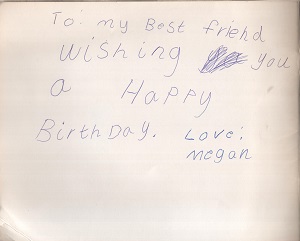 To: my Best friend
wishing you
a Happy
BirthDay. Love:
megan